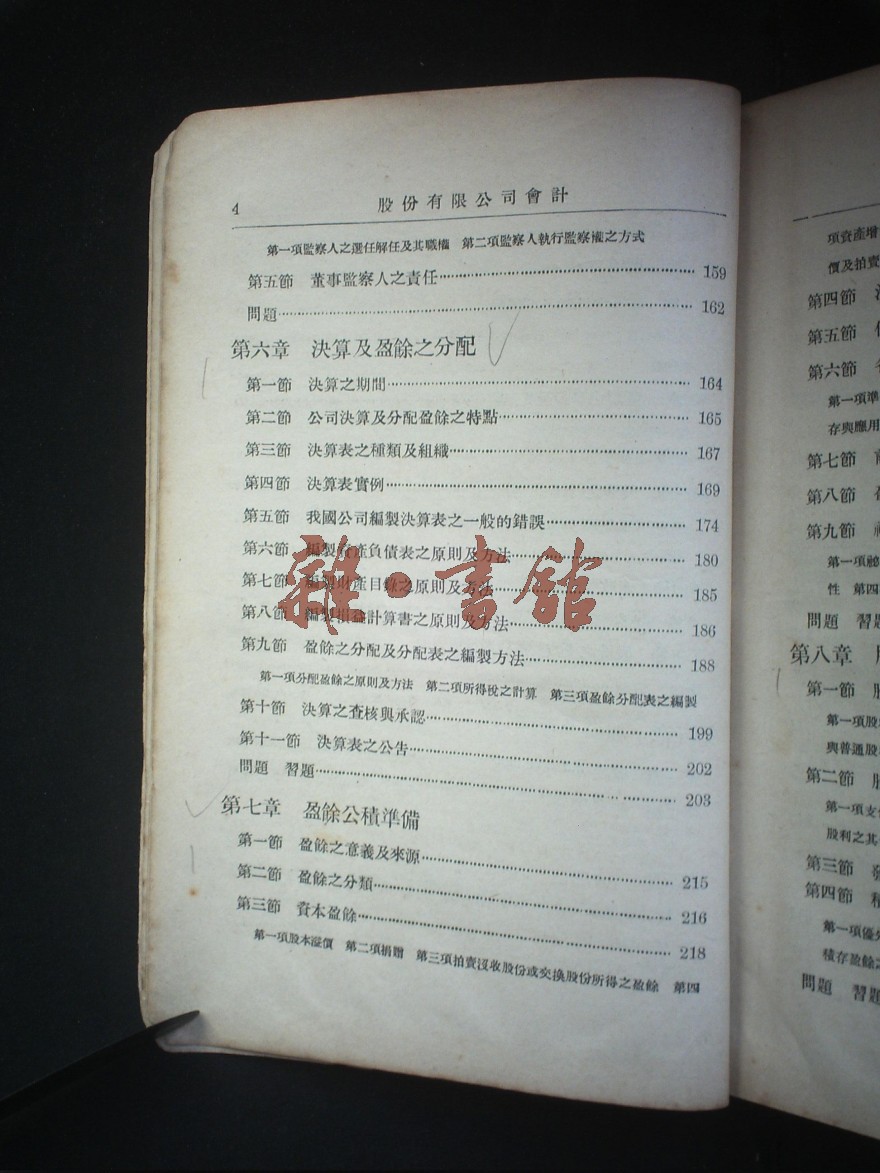 4 股份有限公司會計
第一項監察人之選任解任及其職權 第二項監察人執行監察權之方式
第五節 董事監察人之責任 159
問題 162
第六章 決算及盈餘之分配
第一節 決算之期間 164
第二節 公司決算及分配盈餘之特點 165
第三節 決算表之種類及組織 167
第四節 決算表實例 169
第五節 我國公司編製決算表之一般的錯誤 174
第六節 編製資產負債表之原則及方法 180
第七節 編製財產目錄之原則及方法 185
第八節 編製損益計算書之原則及方法 186
第九節 盈餘之分配及分配表之編製方法 188
第一項分配盈餘之原則及方法 第二項所得稅之計算 第三項盈餘分配表之編製
第十節 決算之查核與承認 199
第十一節 決算表之公告 202
問題 習題 203
第七章 盈餘公積準備
第一節 盈餘之意義及來源 215
第二節 盈餘之分類 216
第三節 資本盈餘 218
第一項股本溢價 第二項捐贈 第三項拍賣沒收股份或交換股份所得之盈餘 第四
雜·書館
項資產增
價及拍賣
第四節
第五節
第六節
第一項準
存與應用
第七節
第八節
第九節
第一項
性 第四
問題 習題
第八章
第一節
第一項股
與普通股
第二節
第一項支
股利之其
第三節
第四節
第一項優先
積存盈餘之
問題 習題